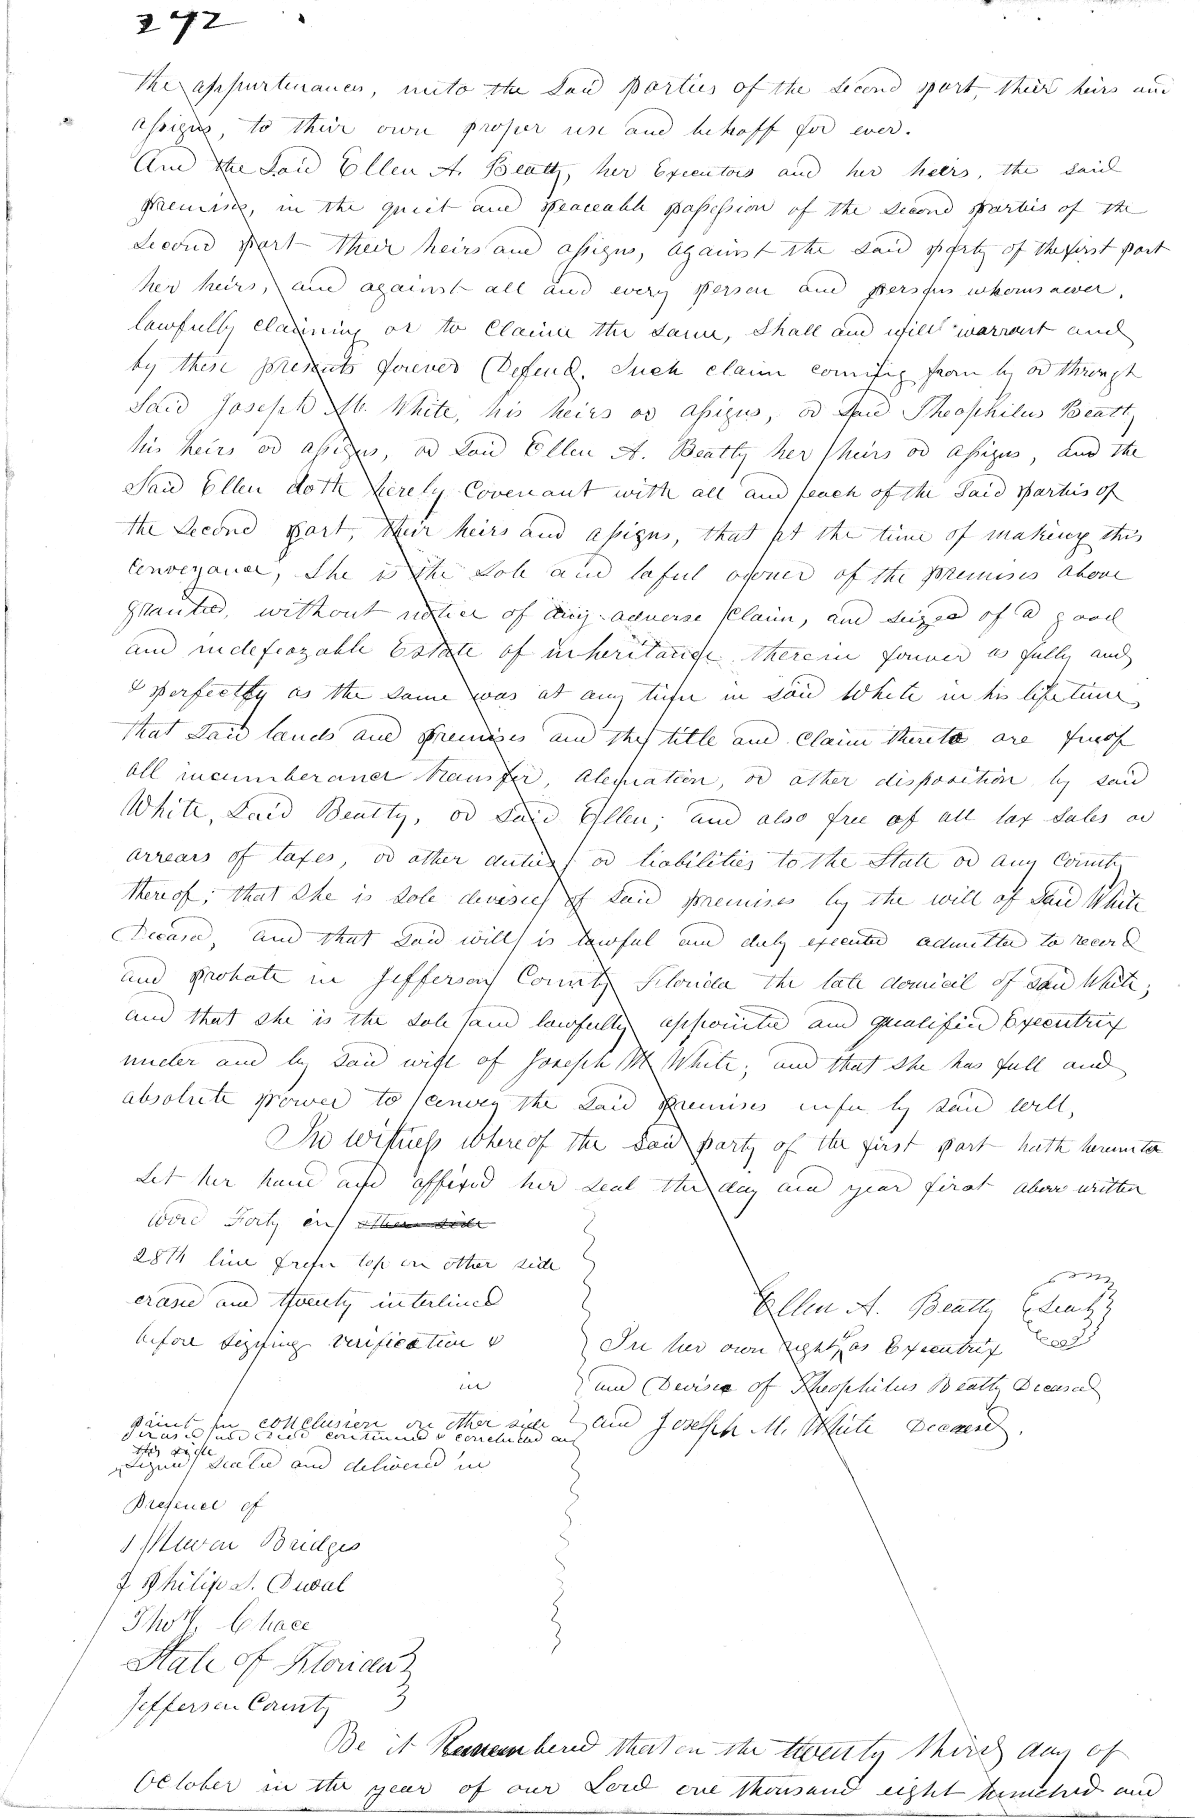 292
the appurtenances, unto the Said parties of the second part, their heirs and
assigns, to their own proper use and behoff for ever.
And the Said Ellen A. Beatty, her Executors and her heirs, the said
premises, in the quiet and peaceable possession of the second parties of the
Second part their heirs and assigns, against the said party of the first part
her heirs, and against all and every person and persons whomsoever,
lawfully claiming or to Claim the same, Shall and will warrant and
by these presents forever Defend. Such claim coming from by or through
Said Joseph M. White, his heirs or assigns, or Said Theophilus Beatty
his heirs or assigns, or Said Ellen A. Beatty her heirs or assigns, and the
Said Ellen doth herely Covenant with all and each of the Said parties of
the Second part, their heirs and assigns, that at the time of making this
Conveyance, She is the Sole and laful owner of the premises above
granted, without notice of any adverse Claim, and seized of a good
and indefeazable Estate of inheritance therein forever as fully and
& perfectly as the same was at any time in said White in his lifetime
that said lands and premises and the title and Claim thereto are free of
all incumberance transfer, alenation, or other disposition by said
White, Said Beatty, or Said Ellen; and also free of all tax sales or
arrears of taxes, or other duties or liabilities to the State or any County
thereof; that she is sole devisee of Said premises by the will of Said White
Deceased, and that said will is lawful and duly executed admitted to record
and probate in Jefferson County Florida the late domicil of said White;
and that she is the sole and lawfully appointed and qualified Executrix
under and by said will of Joseph M White; and that she has full and
absolute power to convey the said premises in fee by said will,
In witness whereof the said party of the first part hath hereunto
Set her hand and affixed her seal the day and year first above written
word Forty on other side
28th line from top on other side
erased and twenty interlined
before signing verification &
in
print in conclusion on other side
erased and continued & concluded on
this side
Signed Sealed and delivered in
Presence of
Ellen A. Beatty (Seal)
In her own right, as Executrix
and Devisee of Theophilus Beatty Deceased
and Joseph M. White Deceased.
Bridges
Philip S. Duval
Thos. Chace
State of Florida
Jefferson County
Be it Remembered that on the twenty third day of
October in the year of our Lord one thousand eight hundred and